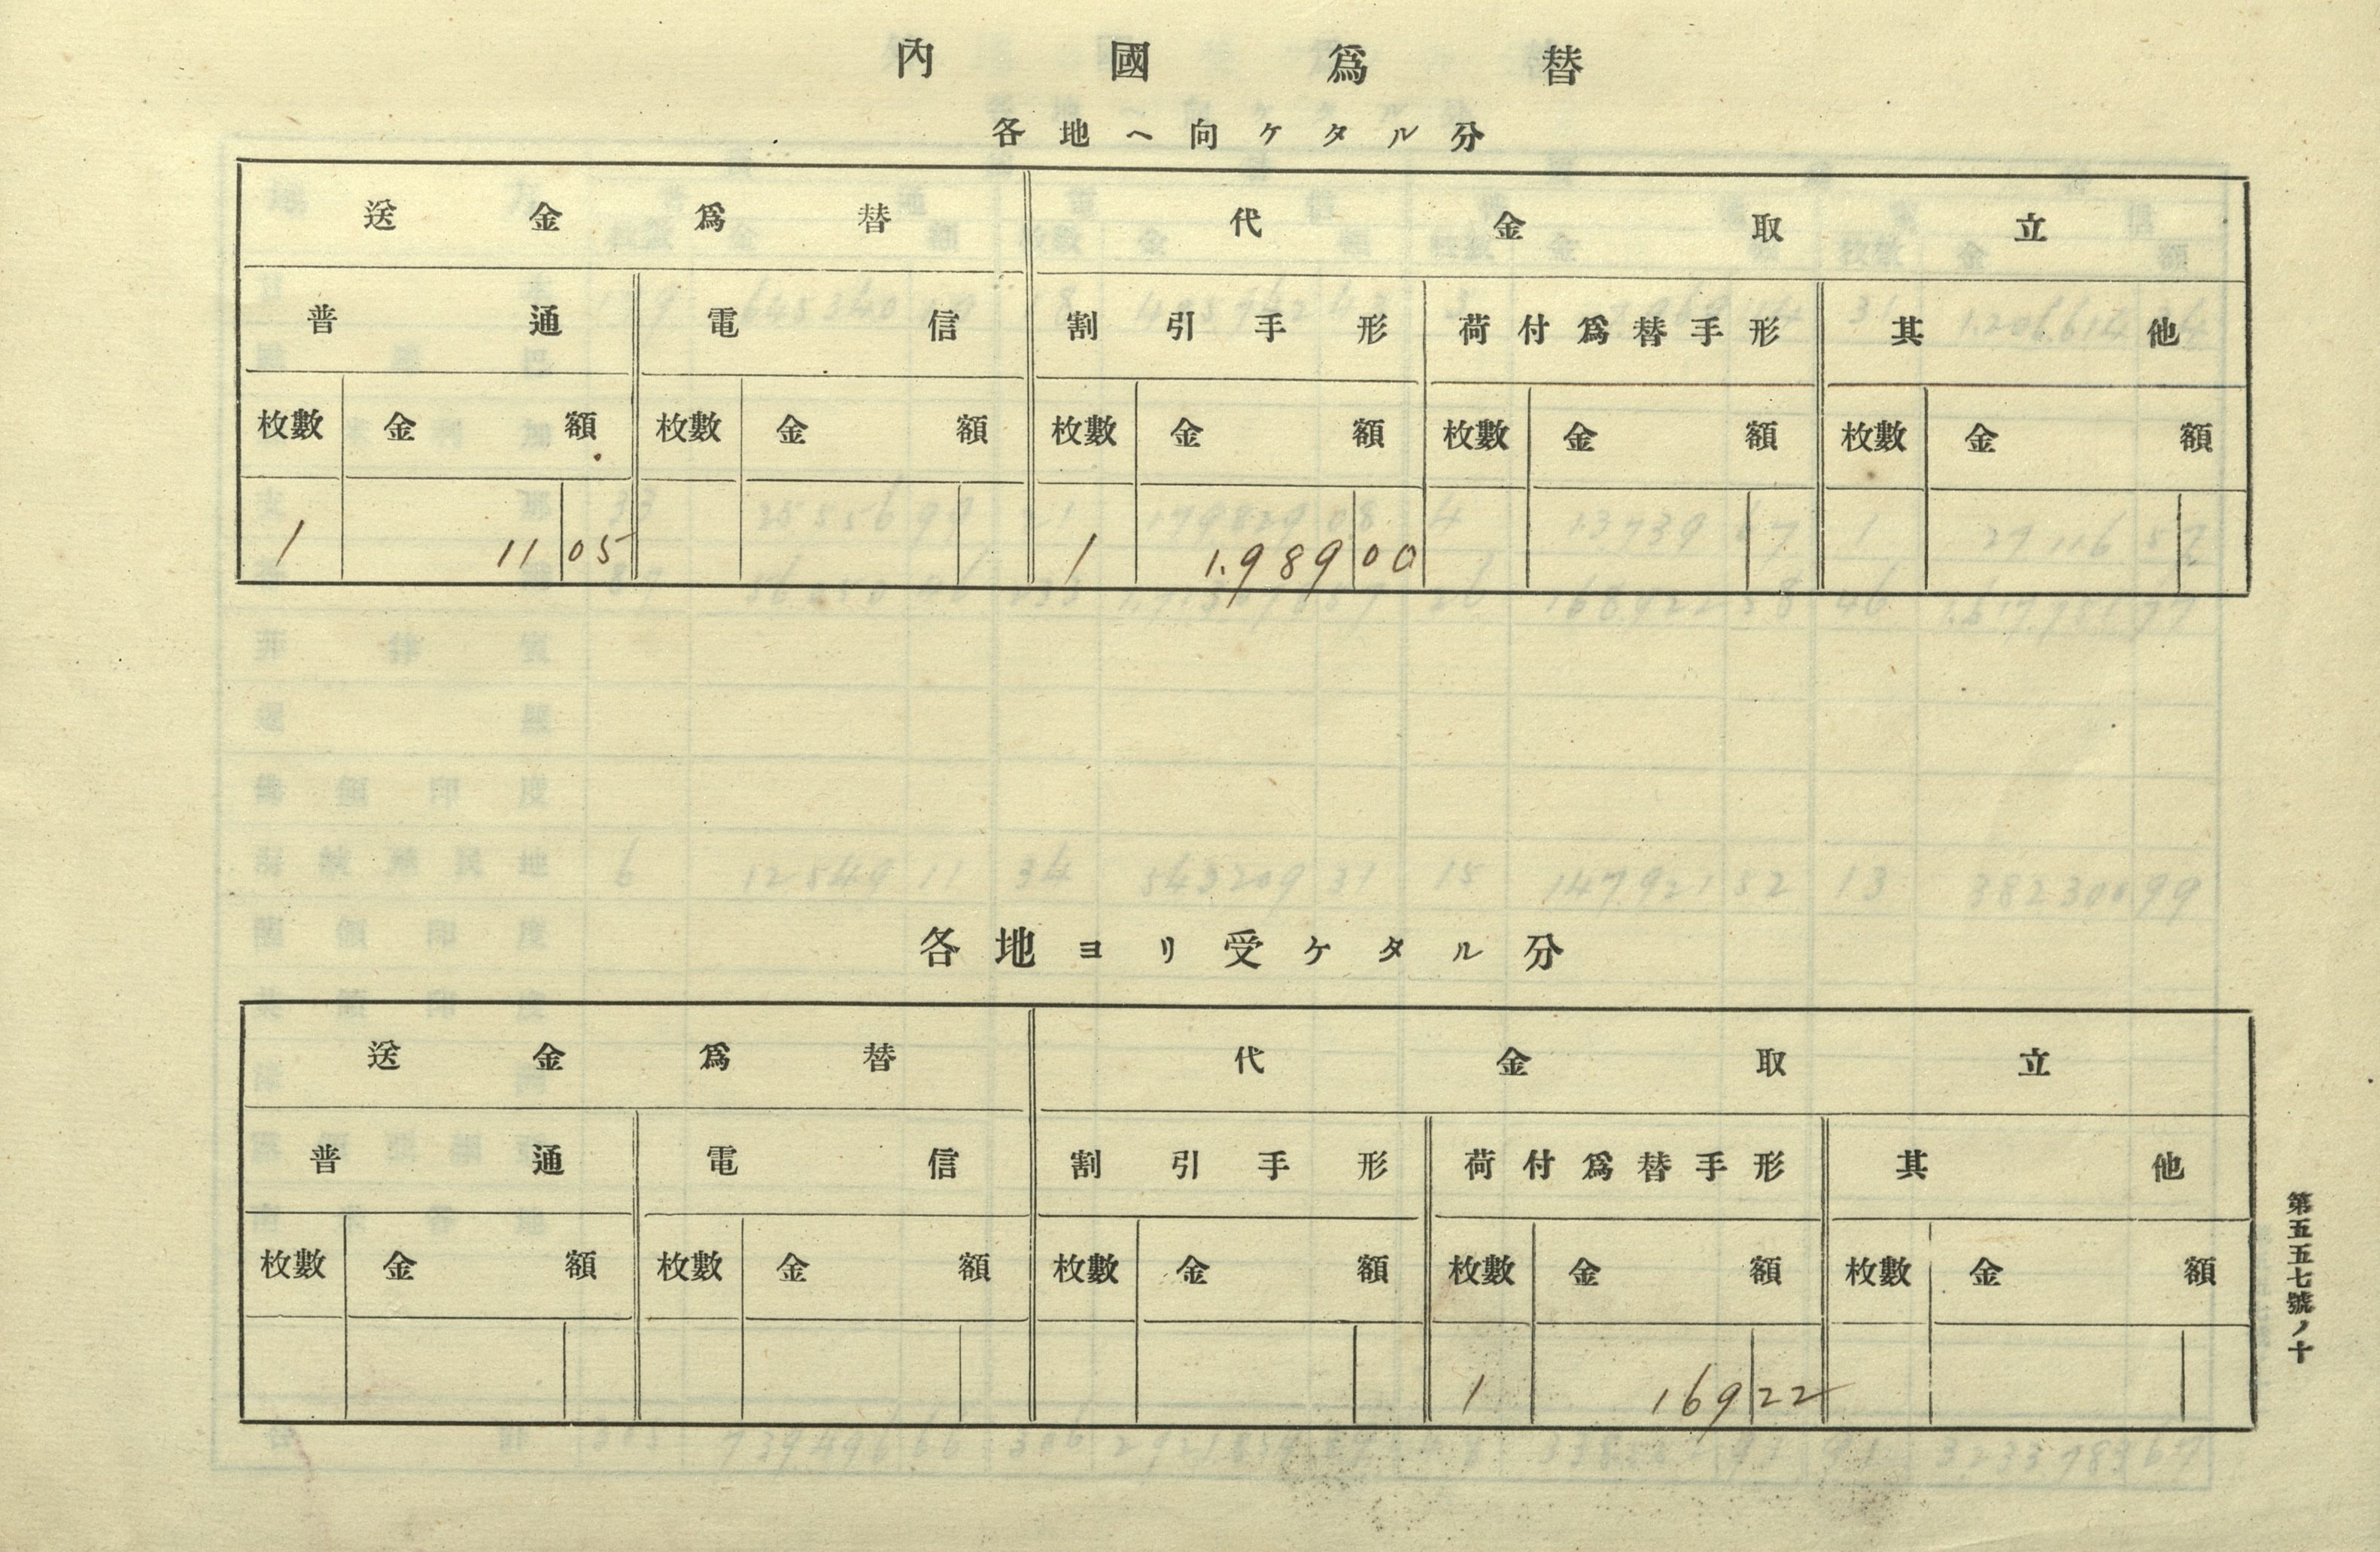 內國爲替
各地へ向ケタル分
送金爲替 代金取立
普通 電信 割引手形 荷付爲替手形 其他
枚數 金額 枚數 金額 枚數 金額 枚數 金額 枚數 金額
1 11 05 1 1.989 00
各地ヨリ受ケタル分
送金爲替 代金取立
普通 電信 割引手形 荷付爲替手形 其他
枚數 金額 枚數 金額 枚數 金額 枚數 金額 枚數 金額
1 169 22
第五五七號ノ十